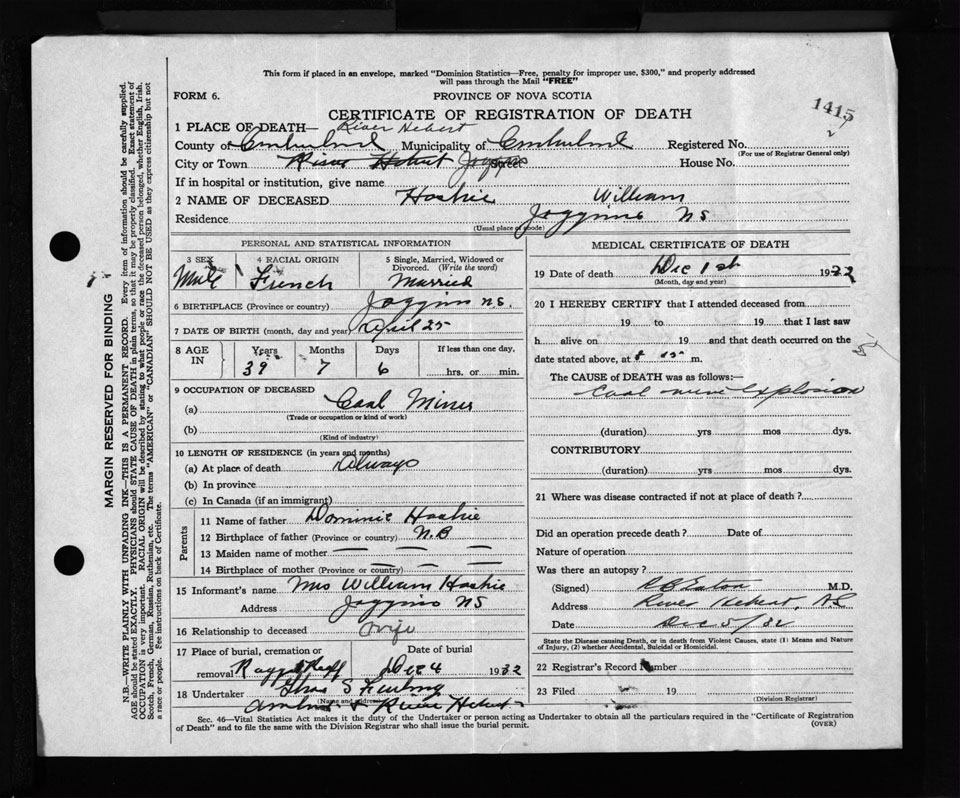 This form if placed in an envelope, marked "Dominion Statistics—Free, penalty for improper use, $300," and properly addressed
will pass through the Mail "FREE"
FORM 6. PROVINCE OF NOVA SCOTIA
1415
2
CERTIFICATE OF REGISTRATION OF DEATH
1 PLACE OF DEATH— River Hebert
County of Cumberland Municipality of Cumberland Registered No.
(For use of Registrar General only)
City or Town River Hebert Joggins Street House No.
If in hospital or institution, give name
2 NAME OF DECEASED Hoskie William
Residence Joggins NS
(Usual place of abode)
PERSONAL AND STATISTICAL INFORMATION
3 SEX 4 RACIAL ORIGIN 5 Single, Married, Widowed or
Divorced. (Write the word)
Male French Married
6 BIRTHPLACE (Province or country) Joggins N.S.
7 DATE OF BIRTH (month, day and year) April 25
8 AGE IN Years Months Days If less than one day,
39 7 6 hrs. or min.
9 OCCUPATION OF DECEASED
(a) Coal Miner
(Trade or occupation or kind of work)
(b)
(Kind of industry)
10 LENGTH OF RESIDENCE (in years and months)
(a) At place of death Always
(b) In province
(c) In Canada (if an immigrant)
Parents
11 Name of father Dominic Hoskie
12 Birthplace of father (Province or country) N.B
13 Maiden name of mother — — —
14 Birthplace of mother (Province or country) — — —
15 Informant's name Mrs William Hoskie
Address Joggins NS
16 Relationship to deceased Wife
17 Place of burial, cremation or removal Date of burial
Dec 4 1932
18 Undertaker Thos S
(Name and address)
Amherst + River Hebert
MEDICAL CERTIFICATE OF DEATH
19 Date of death Dec 1st 1932
(Month, day and year)
20 I HEREBY CERTIFY that I attended deceased from
19 to 19 that I last saw
h alive on 19 and that death occurred on the
date stated above, at m.
The CAUSE OF DEATH was as follows:—
Coal mine explosion
(duration) yrs mos dys.
CONTRIBUTORY
(duration) yrs mos dys.
21 Where was disease contracted if not at place of death?
Did an operation precede death? Date of
Nature of operation
Was there an autopsy?
(Signed) Eaton M.D.
Address River Hebert, NS
Date Dec 5/32
State the Disease causing Death, or in death from Violent Causes, state (1) Means and Nature
of Injury, (2) whether Accidental, Suicidal or Homicidal.
22 Registrar's Record Number
23 Filed 19
(Division Registrar)
Sec. 46—Vital Statistics Act makes it the duty of the Undertaker or person acting as Undertaker to obtain all the particulars required in the "Certificate of Registration
of Death" and to file the same with the Division Registrar who shall issue the burial permit.
(OVER)
MARGIN RESERVED FOR BINDING
N.B.—WRITE PLAINLY WITH UNFADING INK—THIS IS A PERMANENT RECORD. Every item of information should be carefully supplied.
AGE should be stated EXACTLY. PHYSICIANS should STATE CAUSE OF DEATH in plain terms, so that it may be properly classified. Exact statement of
OCCUPATION is very important. RACIAL ORIGIN will be described by stating to what people or race the deceased person belonged, whether English, Irish,
Scotch, French, German, Russian, Ruthenian, etc. The terms "AMERICAN" or "CANADIAN" SHOULD NOT BE USED as they express citizenship but not
a race or people. Fee instructions on back of Certificate.